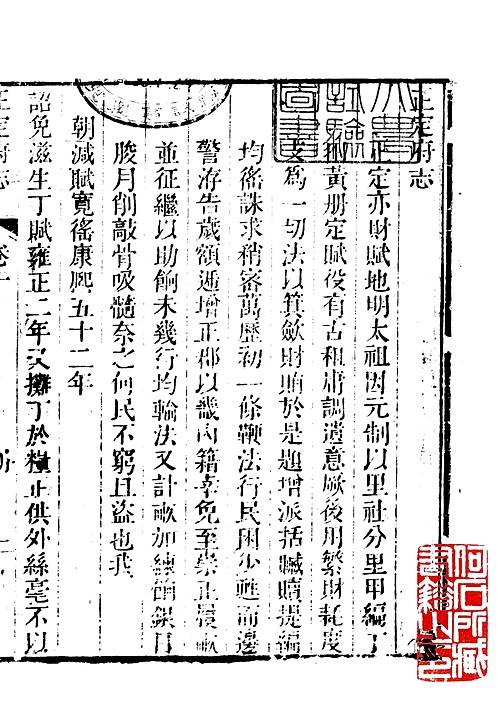 正定府志
正定亦財賦地明太祖因元制以里社分里甲編丁
黃册定賦役有古租庸調遺意厥後用繁財耗度
支爲一切法以箕歛財賄於是題增派括贓贖提編
均徭誅求稍密萬歷初一條鞭法行民困少甦而邊
警洊告歲額遞增正郡以畿內籍幸免至崇正履畝
並征繼以助餉未幾行均輸法又計畝加練餉銀日
朘月削敲骨吸髓奈之何民不窮且盜也我
朝減賦寬徭康熙五十二年
詔免滋生丁賦雍正二年又攤丁於糧正供外絲毫不以
正定府志
卷十